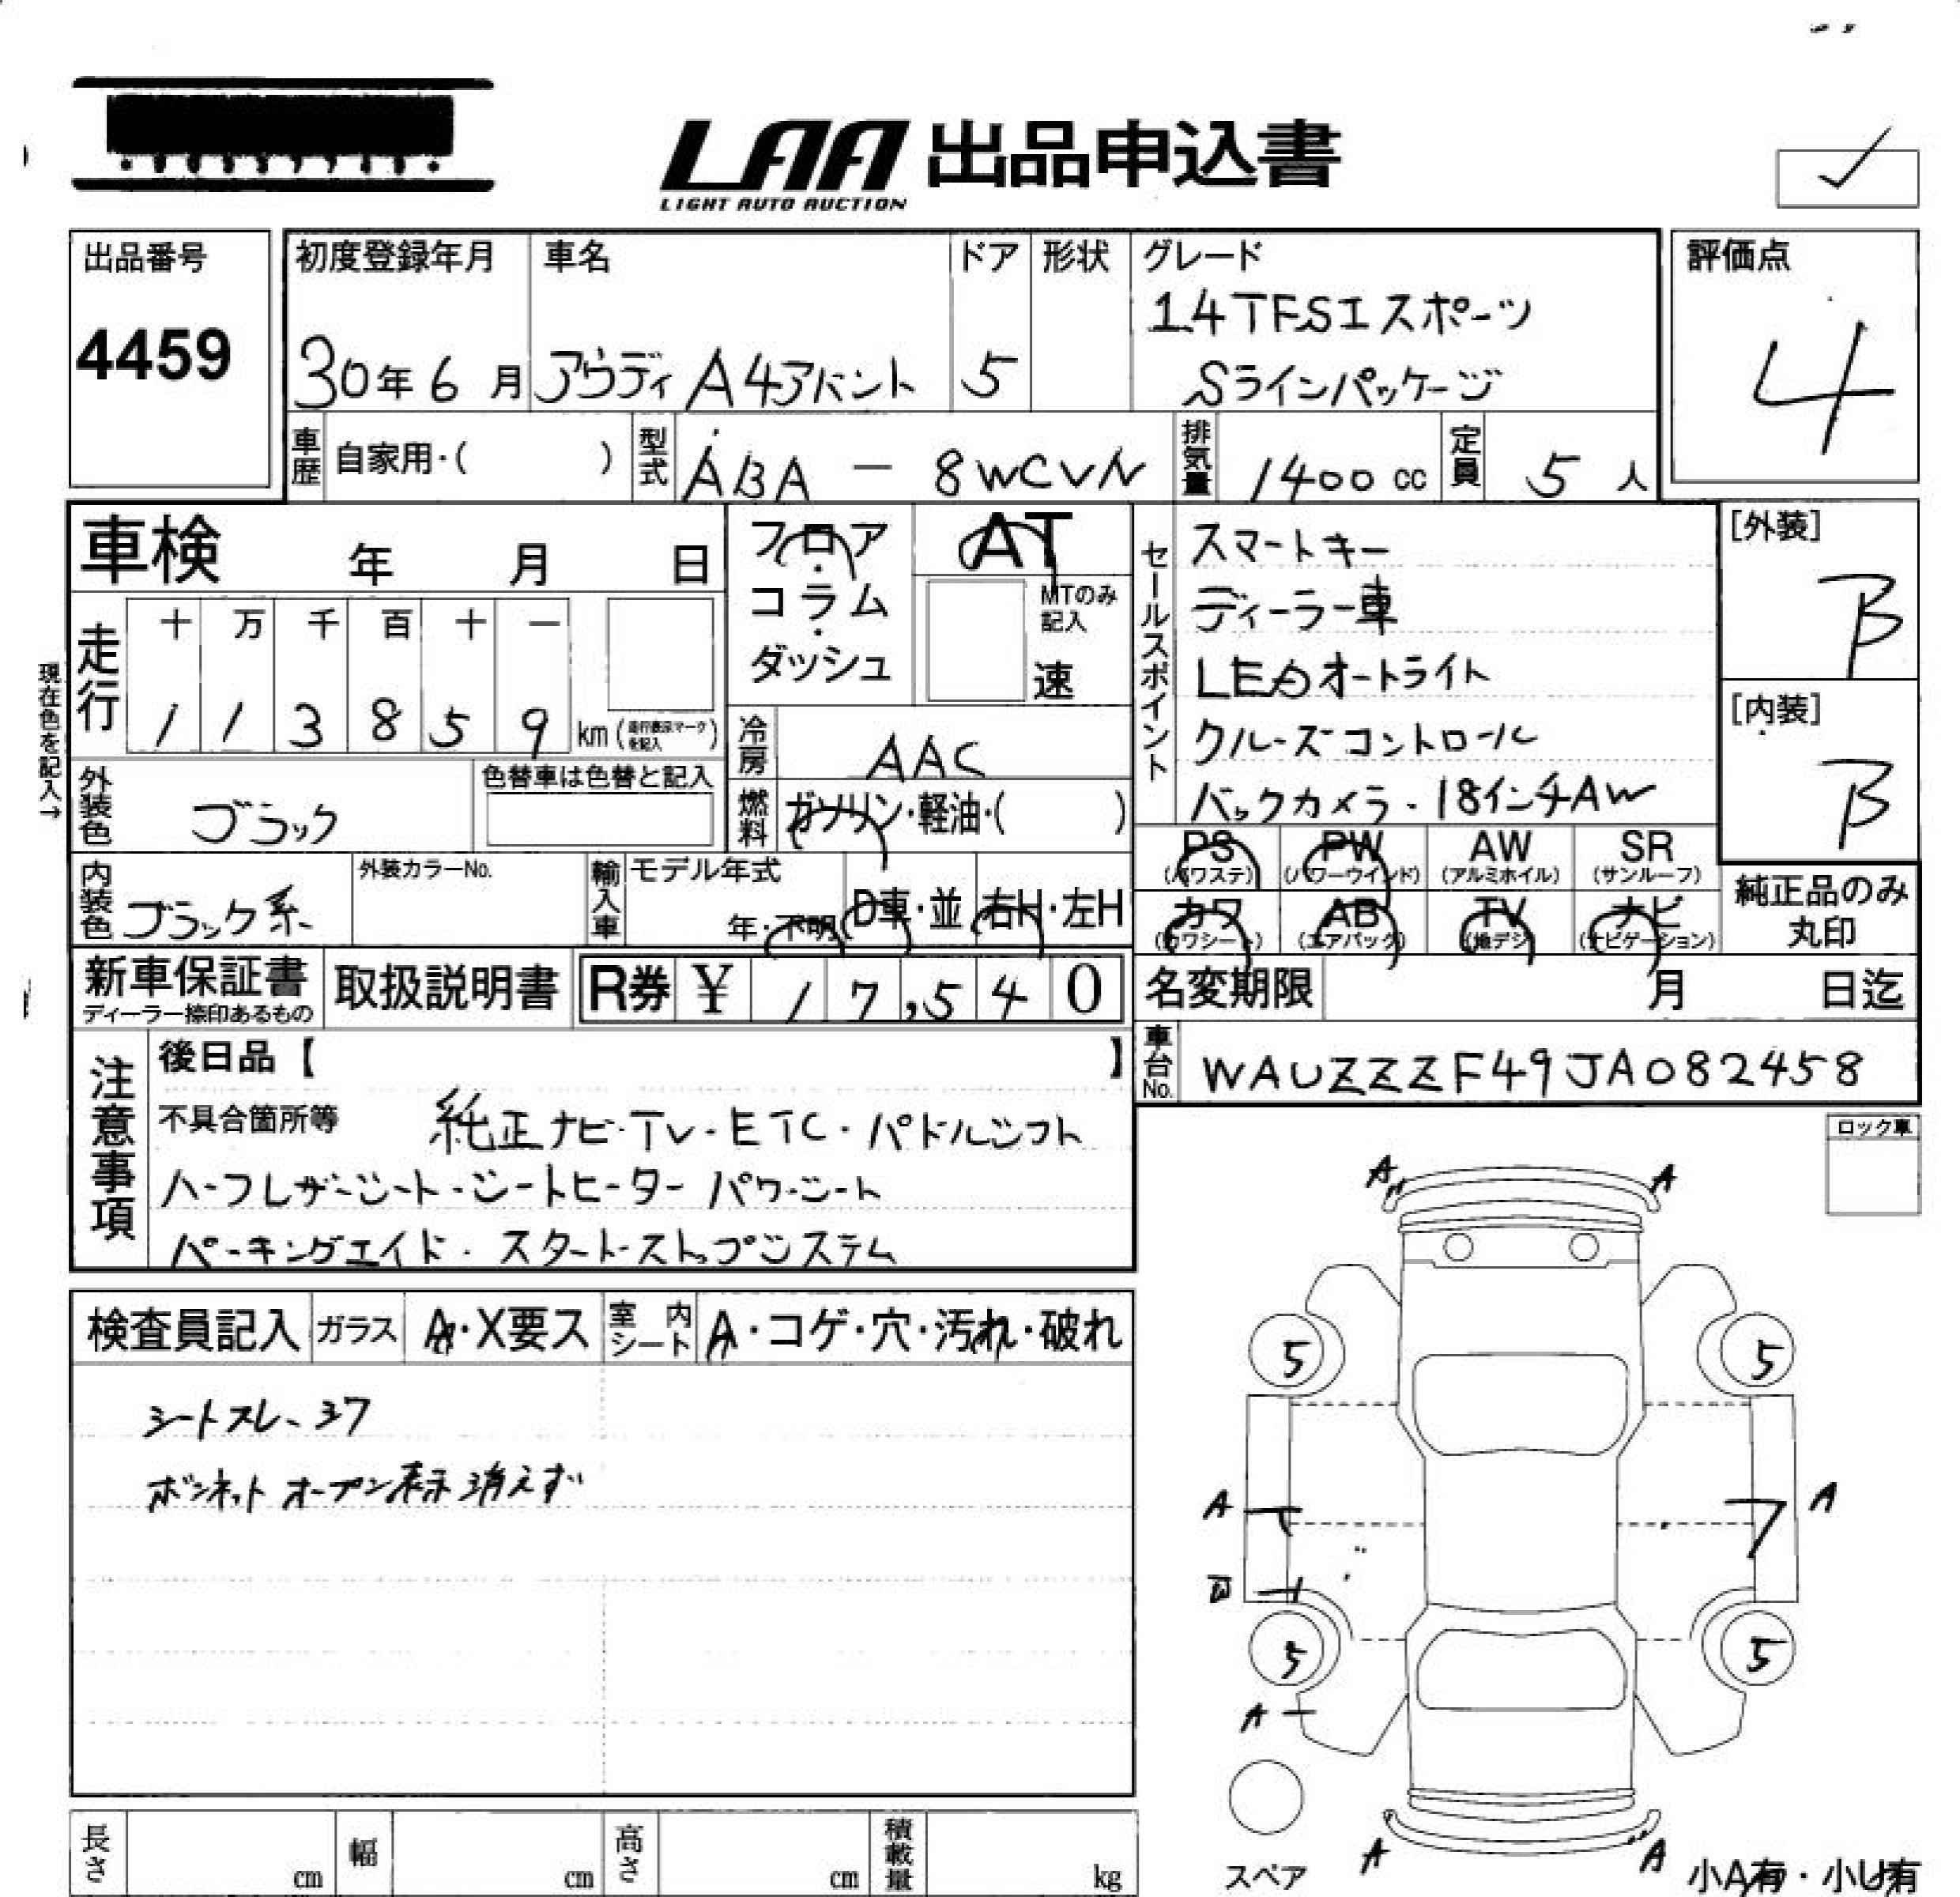 LAA 出品申込書
LIGHT AUTO AUCTION
出品番号
4459
初度登録年月
30年6月
車名
アウディ A4アバント
ドア
5
形状
グレード
1.4TFSIスポーツ
Sラインパッケージ
評価点
4
車歴 自家用・( )
型式 ABA - 8WCVN
排気量 1400 cc
定員 5 人
車検 年 月 日
走行 十 万 千 百 十 一
1 1 3 8 5 9 km (走行表示マークを記入)
現在色を記入→
外装色 ブラック
色替車は色替と記入
内装色 ブラック系
外装カラーNo.
輸入車 モデル年式
年・不明 D車・並 右H・左H
フロア・コラム・ダッシュ
AT
MTのみ記入
速
冷房 AAC
燃料 ガソリン・軽油・( )
セールスポイント
スマートキー
ディーラー車
LEDオートライト
クルーズコントロール
バックカメラ・18インチAW
[外装]
B
[内装]
B
PS (パワステ) PW (パワーウインド) AW (アルミホイル) SR (サンルーフ)
カワ (カワシート) AB (エアバック) TV (地デジ) ナビ (ナビゲーション)
純正品のみ
丸印
新車保証書
ディーラー捺印あるもの
取扱説明書
R券 ¥ 17,540
名変期限 月 日迄
車台No. WAUZZZF49JA082458
注意事項
後日品【 】
不具合箇所等 純正ナビ・TV・ETC・パドルシフト
ハーフレザーシート・シートヒーター パワーシート
パーキングエイド・スタートストップシステム
ロック車
検査員記入 ガラス A・X要ス 室内シート A・コゲ・穴・汚れ・破れ
シートスレ、
ボンネットオープン表示消えず
A A
5 5
A A
5 5
A
A A
スペア
小A有・小U有
長さ cm 幅 cm 高さ cm 積載量 kg